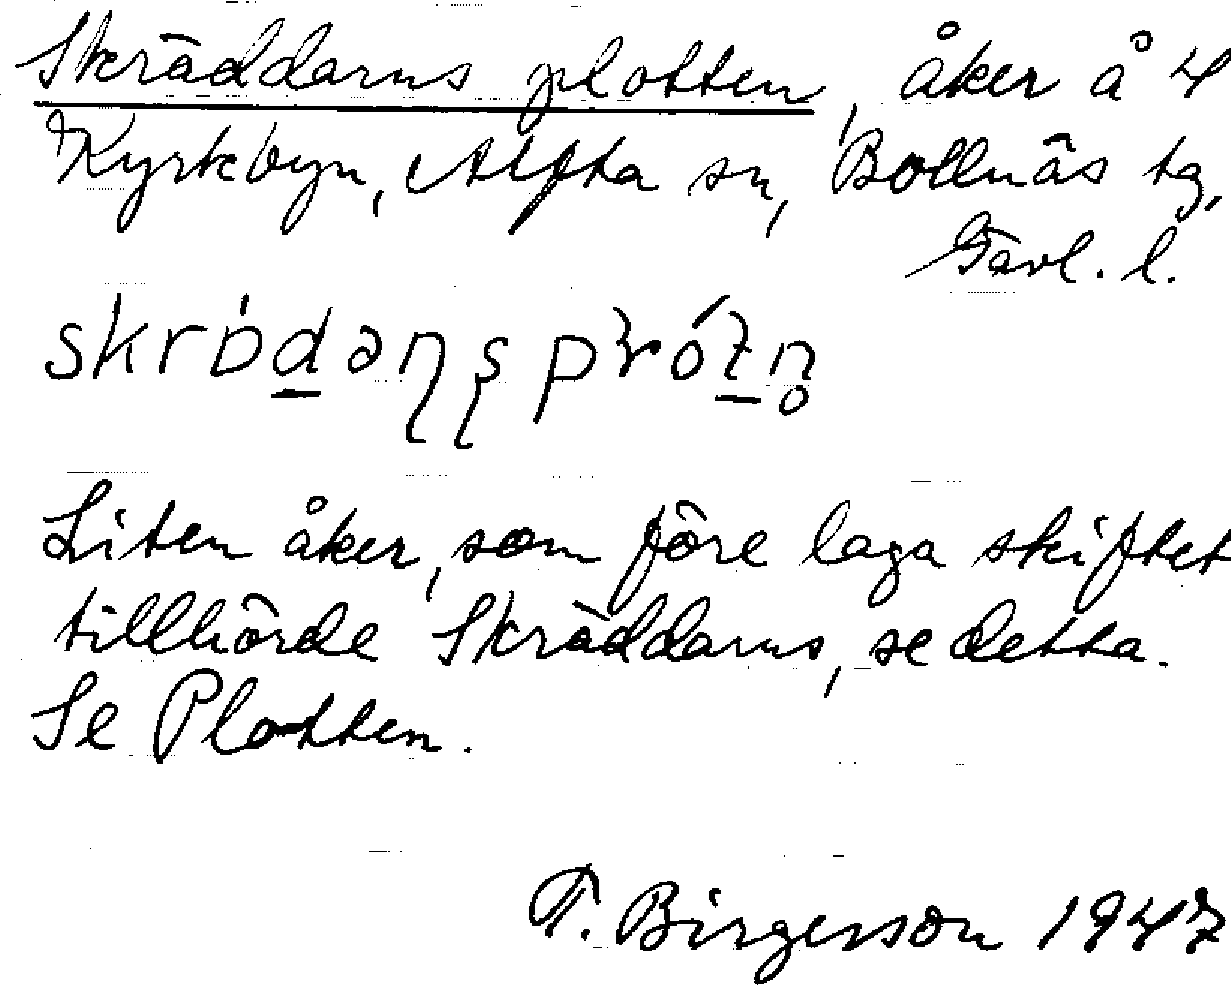 Skräddarns plotten, åker å 4
Kyrkbyn, Alfta sn, Bollnäs tg,
Gävl. l.
Liten åker, som före laga skiftet
tillhörde Skräddarns, se detta.
Se Plotten.
T. Birgerson 1947